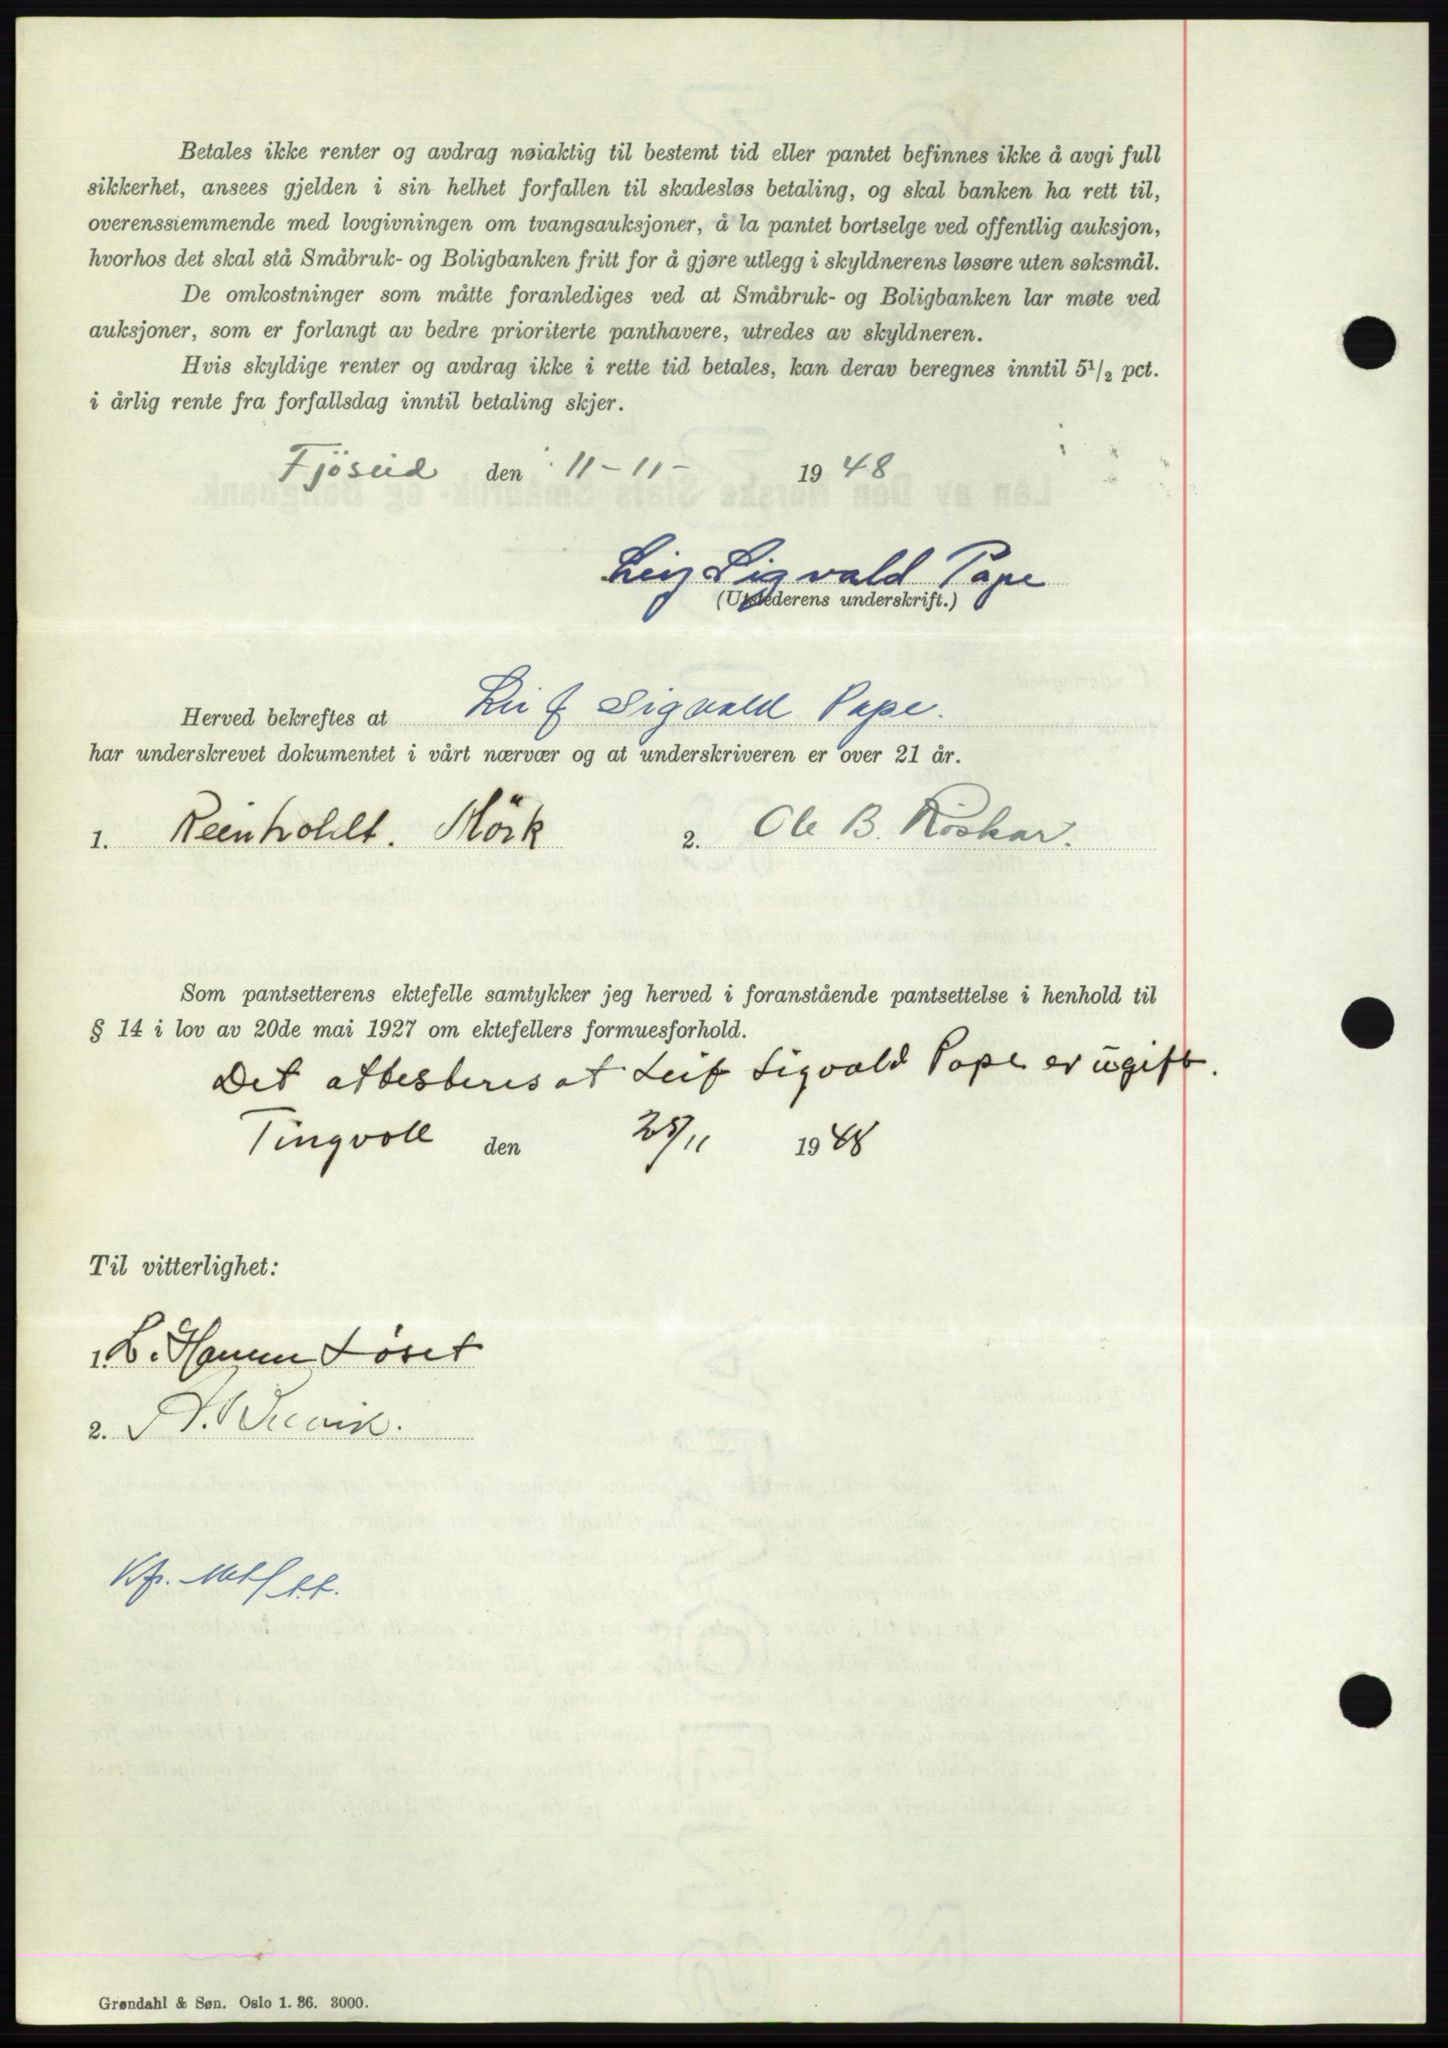 Betales ikke renter og avdrag nøiaktig til bestemt tid eller pantet befinnes ikke å avgi full
sikkerhet, ansees gjelden i sin helhet forfallen til skadesløs betaling, og skal banken ha rett til,
overenssiemmende med lovgivningen om tvangsauksjoner, å la pantet bortselge ved offentlig auksjon,
hvorhos det skal stå Småbruk- og Boligbanken fritt for å gjøre utlegg i skyldnerens løsøre uten søksmål.
De omkostninger som måtte foranlediges ved at Småbruk- og Boligbanken lar møte ved
auksjoner, som er forlangt av bedre prioriterte panthavere, utredes av skyldneren.
Hvis skyldige renter og avdrag ikke i rette tid betales, kan derav beregnes inntil 5½ pct.
i årlig rente fra forfallsdag inntil betaling skjer.
Fjöseid den 11-11- 1948
Leif Sigvald Pape
(Utstederens underskrift.)
Herved bekreftes at Leif Sigvald Pape.
har underskrevet dokumentet i vårt nærvær og at underskriveren er over 21 år.
1. Reinholdt. Mörk 2. Ole B. Röskar.
Som pantsetterens ektefelle samtykker jeg herved i foranstående pantsettelse i henhold til
§ 14 i lov av 20de mai 1927 om ektefellers formuesforhold.
Det attesteres at Leif Sigvald Pape er ugift.
Tingvoll den 25/11 1948
Til vitterlighet:
1. L. Hamn Løset
2.
Grøndahl & Søn. Oslo 1. 36. 3000.